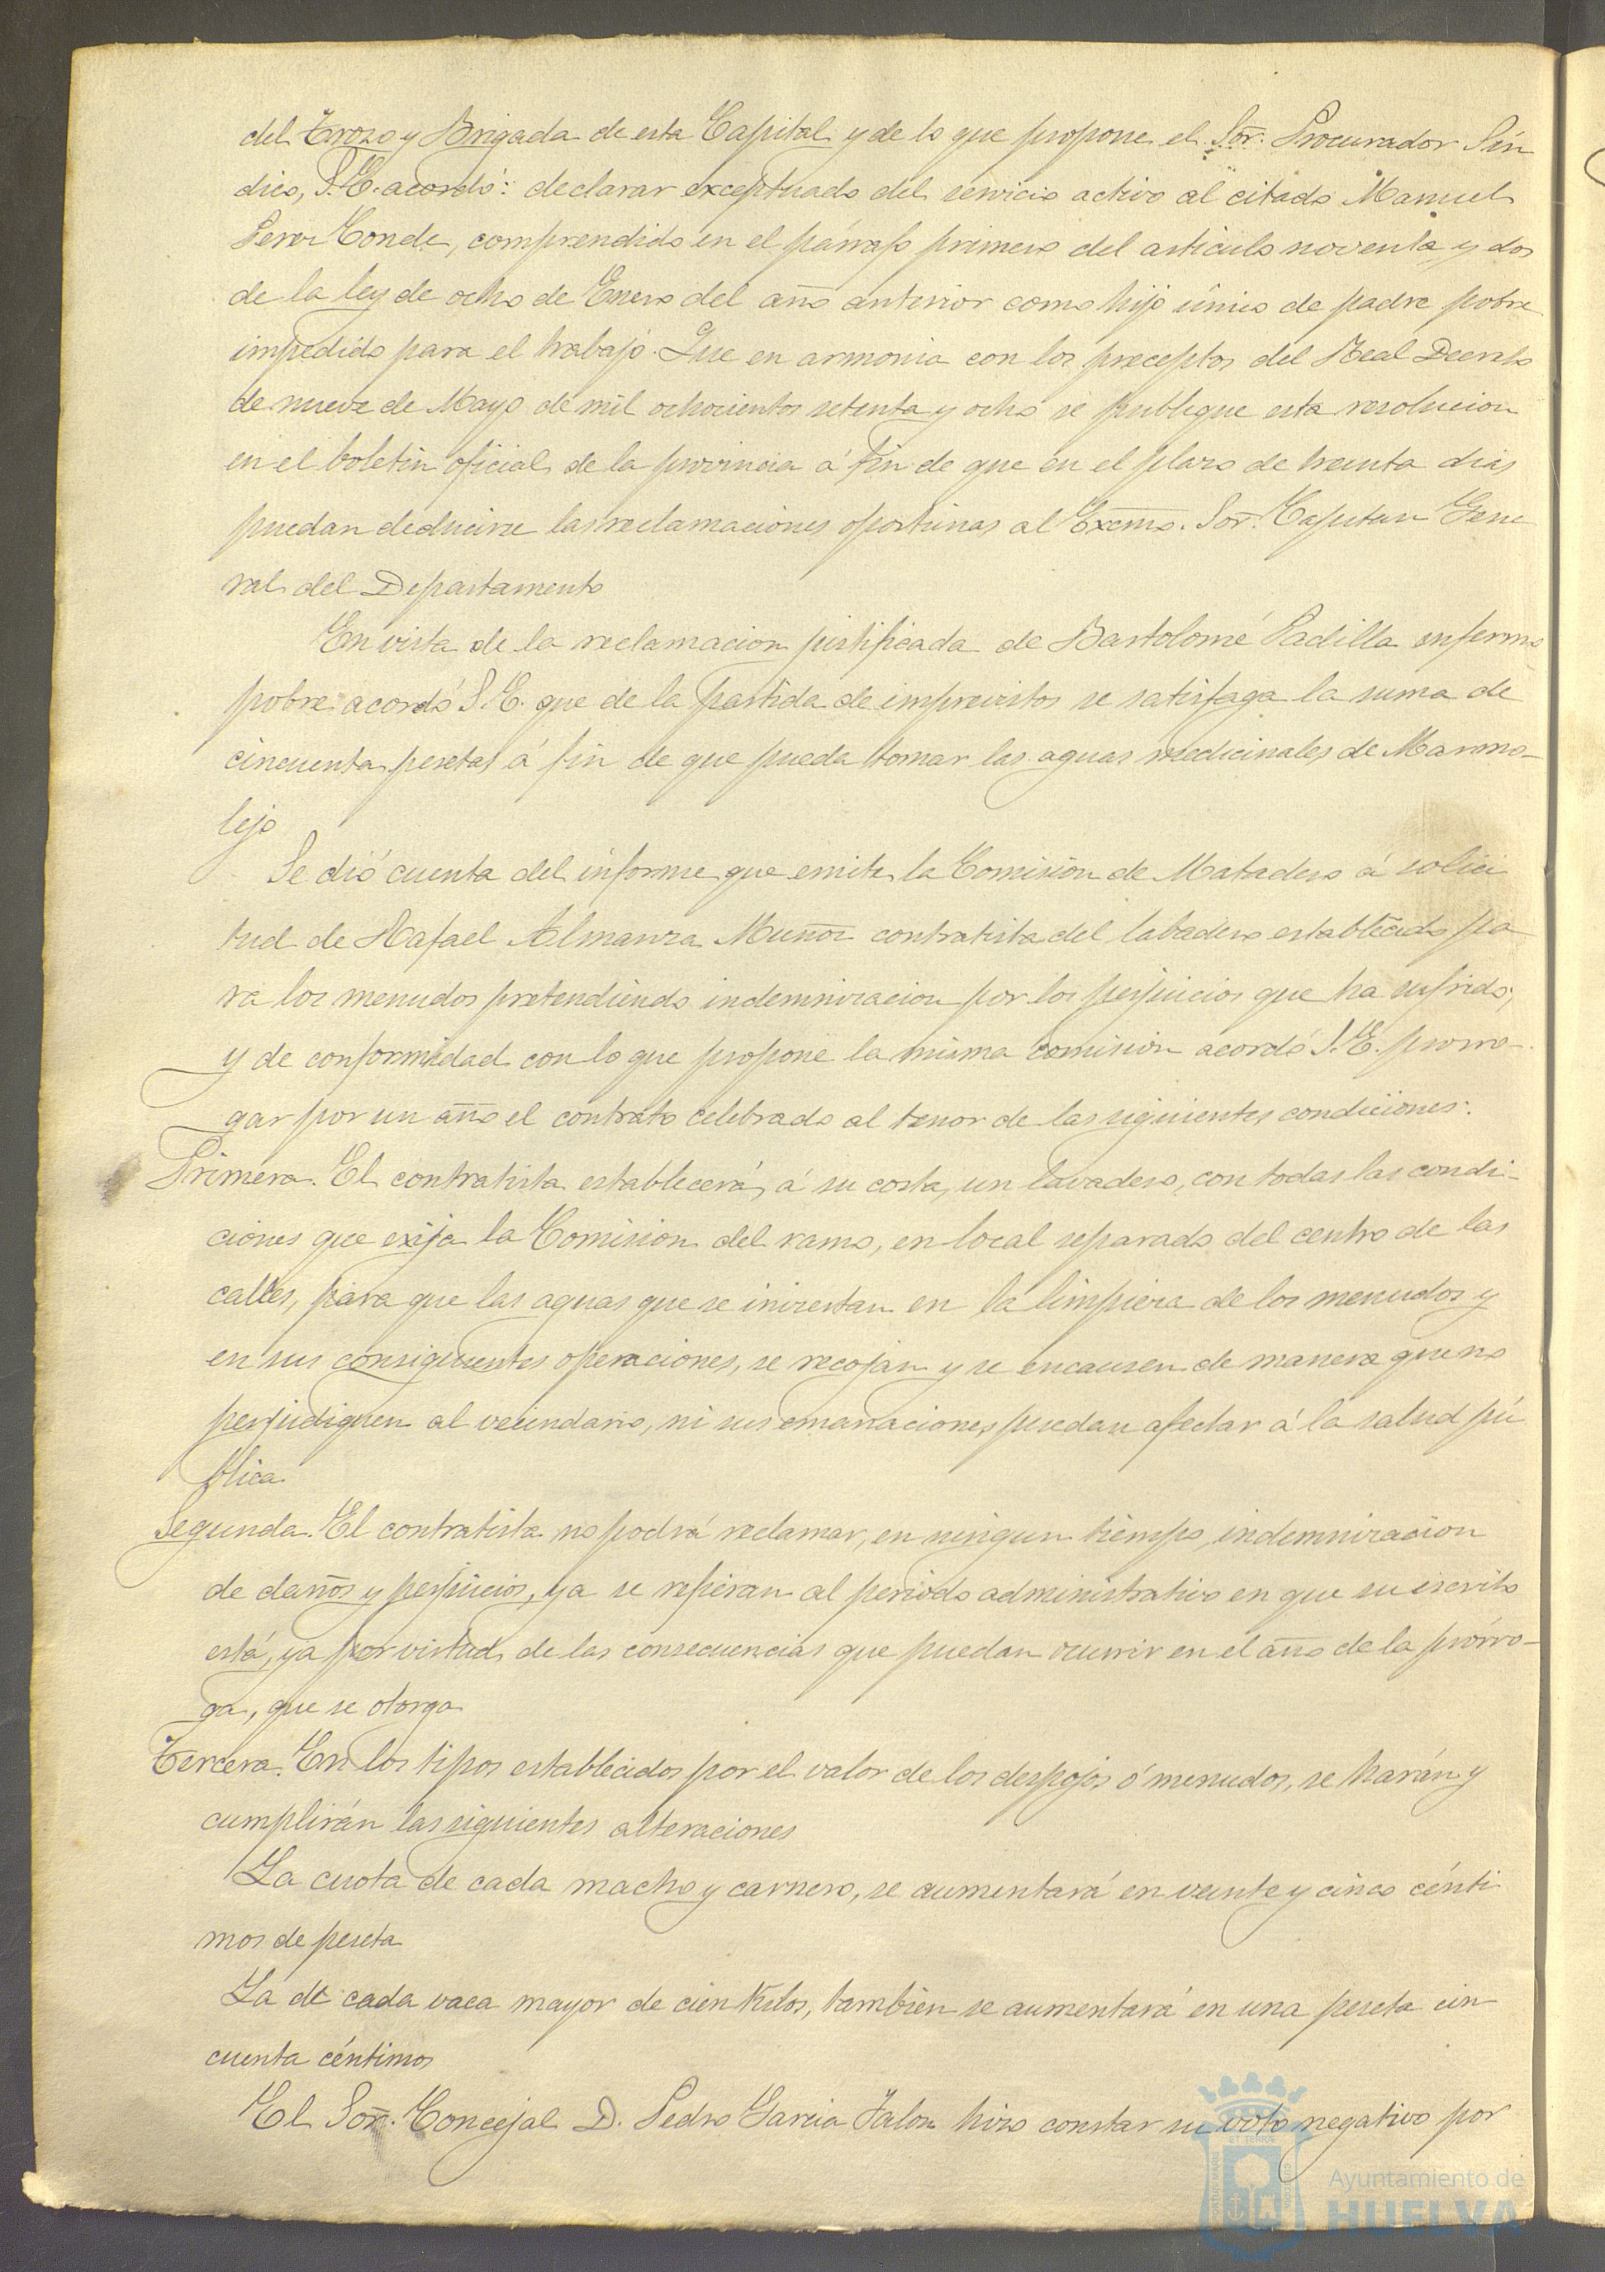 del Trozo y Brigada de esta Capital y de lo que propone el Sor. Procurador Sín
dico, S.E. acordó: declarar exceptuado del servicio activo al citado Manuel
Perez Conde, comprendido en el párrafo primero del artículo noventa y dos
de la ley de ocho de Enero del año anterior como hijo único de padre pobre
impedido para el trabajo. Que en armonia con los preceptos del Real Decreto
de nueve de Mayo de mil ochocientos setenta y ocho se publique esta resolucion
en el boletin oficial de la provincia á fin de que en el plazo de treinta dias
puedan deducirse las reclamaciones oportunas al Excmo. Sor. Capitan Gene
ral del Departamento
En vista de la reclamacion justificada de Bartolomé Padilla enfermo
pobre acordó S.E. que de la partida de imprevistos se satisfaga la suma de
cincuenta pesetas á fin de que pueda tomar las aguas medicinales de Marmo-
lejo
Se dió cuenta del informe que emite la Comision de Matadero á solici
tud de Rafael Almanza Muñoz contratista del labadero establecido pa
ra los menudos pretendiendo indemnizacion por los perjuicios que ha sufrido;
y de conformidad con lo que propone la misma comision acordó S.E. prorro-
gar por un año el contrato celebrado al tenor de las siguientes condiciones:
Primera. El contratista establecerá, á su costa, un lavadero, con todas las condi-
ciones que exija la Comision del ramo, en local separado del centro de las
calles, para que las aguas que se invertan en la limpieza de los menudos y
en sus consiguientes operaciones, se recojan y se encausen de manera que no
perjudiquen al vecindario, ni sus emanaciones puedan afectar á la salud pú
blica
Segunda. El contratista no podrá reclamar, en ningun tiempo, indemnizacion
de daños y perjuicios, ya se refieran al periodo administrativo en que su escrito
está, ya por virtud de las consecuencias que puedan ocurrir en el año de la prórro-
ga, que se otorga
Tercera. En los tipos establecidos por el valor de los despojos ó menudos, se harán y
cumplirán las siguientes alteraciones
La cuota de cada macho y carnero, se aumentará en veinte y cinco cénti
mos de peseta
La de cada vaca mayor de cien kilos, tambien se aumentará en una peseta cin
cuenta céntimos
El Sor. Concejal D. Pedro Garcia Jalon hizo constar su voto negativo por
Ayuntamiento de
HUELVA